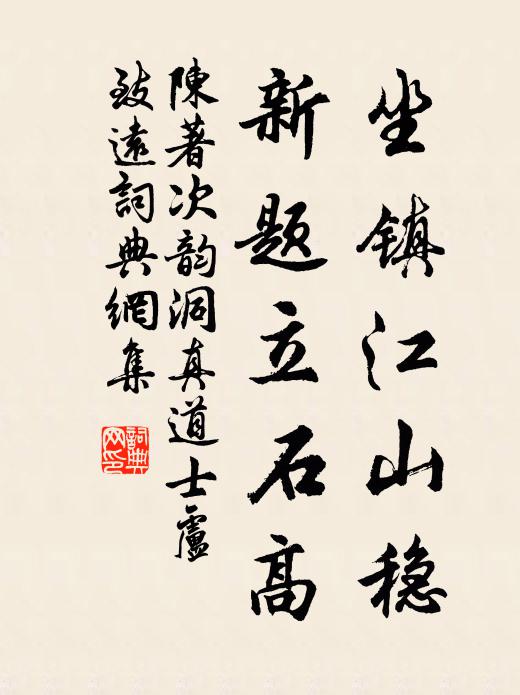 坐镇江山稳
新题立石高
陳著次韵洞真道士廬
致遠詞典網集
詞典
网印